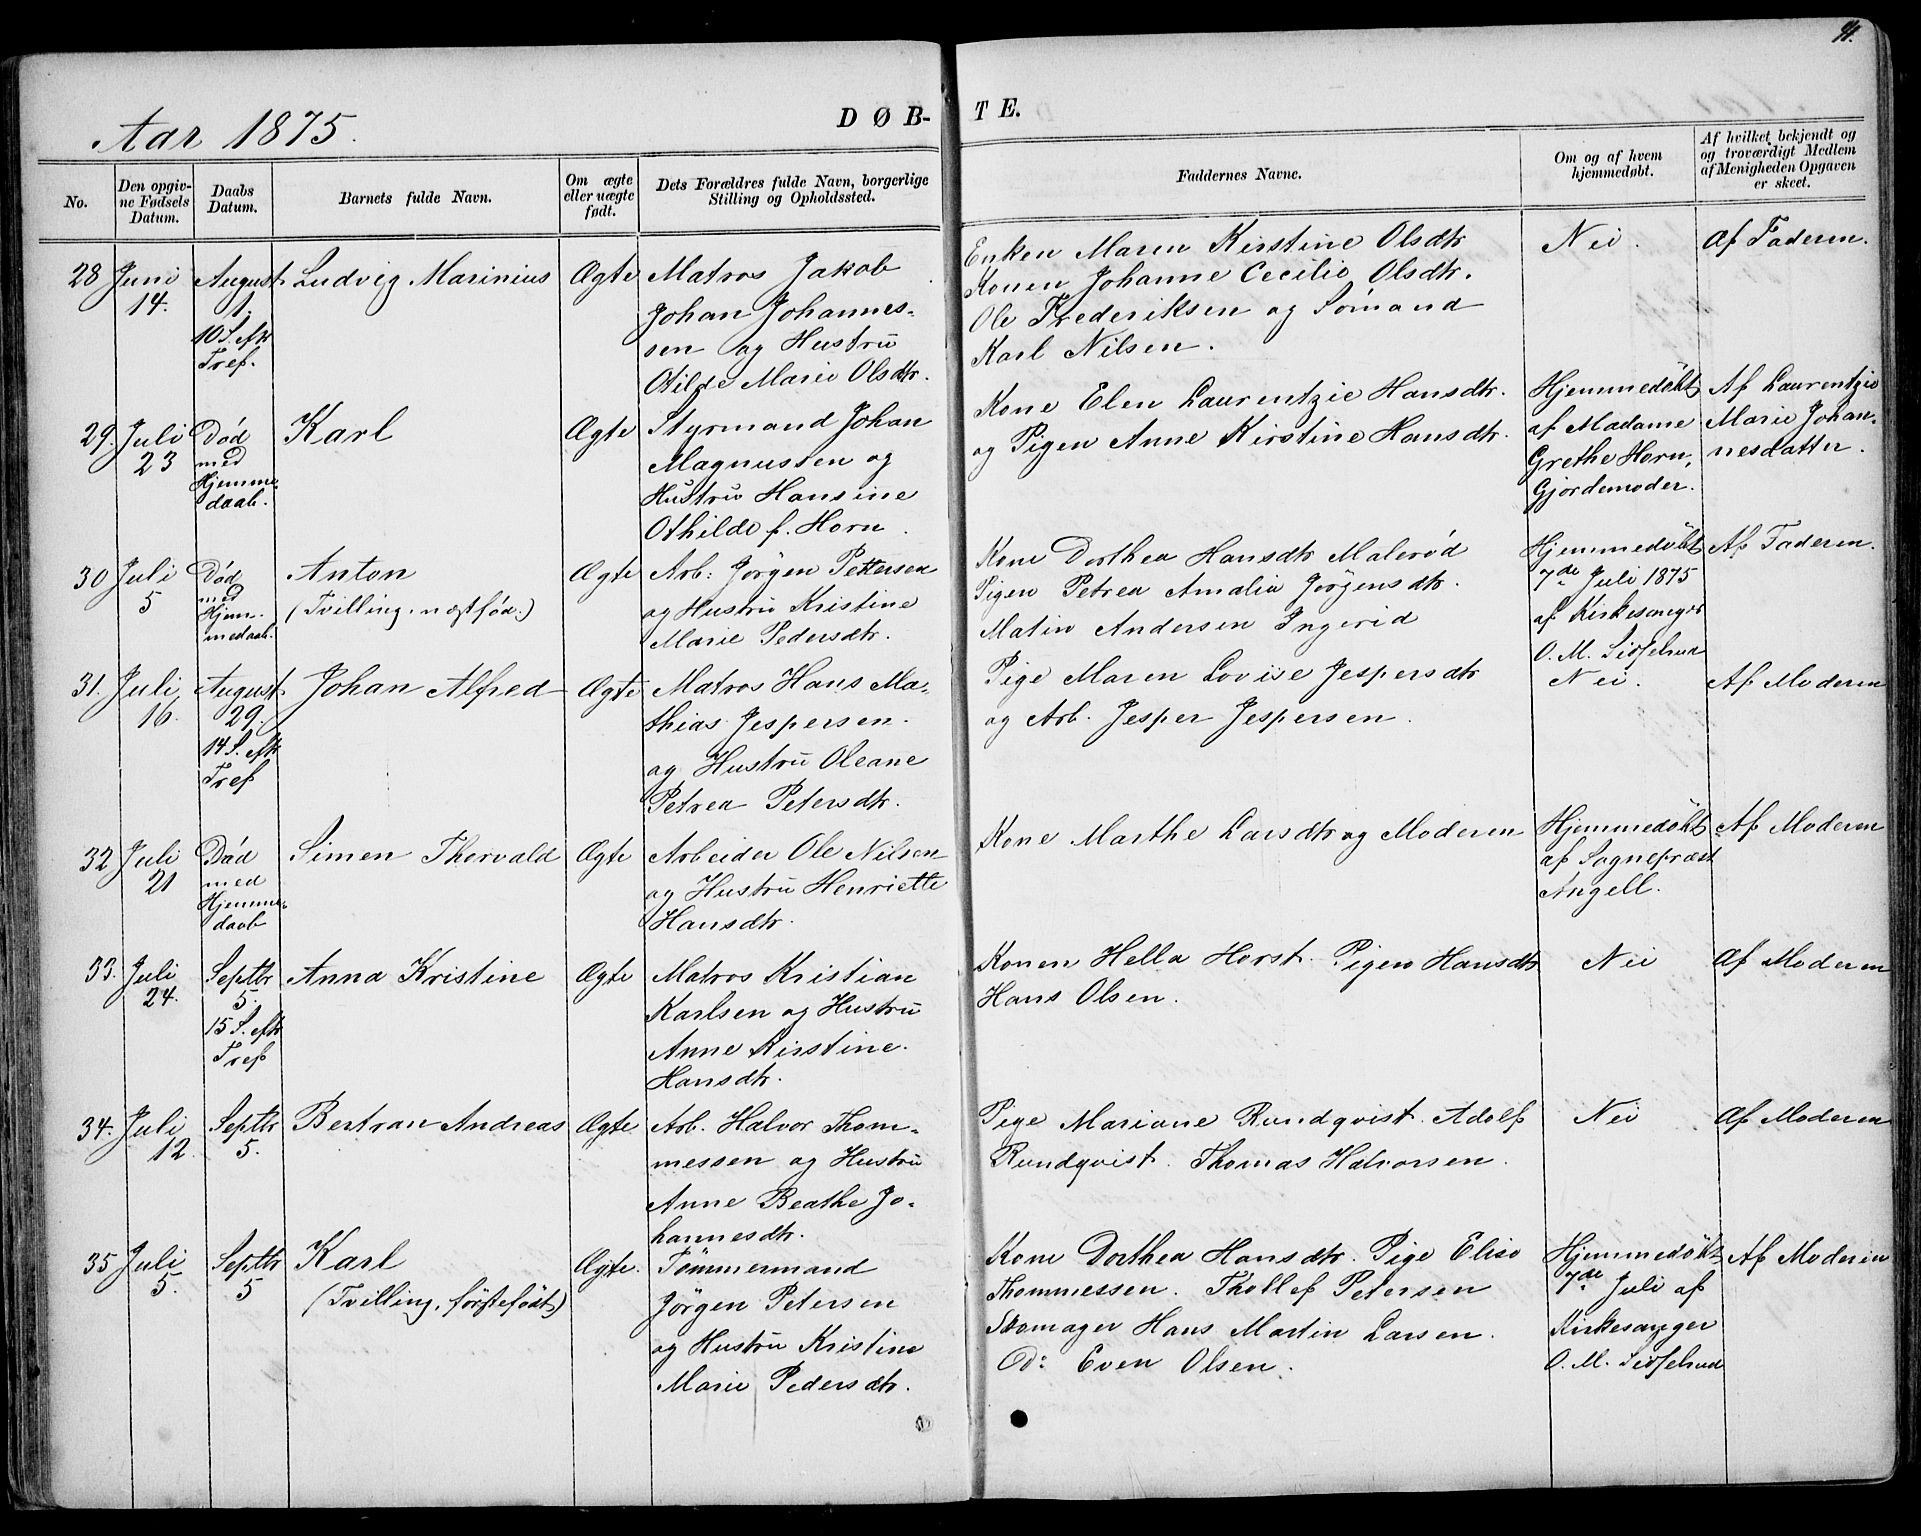 91.
Aar 1875.
DØB-
TE.
No.
Den opgiv-
ne Fødsels
Datum.
Daabs
Datum.
Barnets fulde Navn.
Om ægte
eller uægte
født.
Dets Forældres fulde Navn, borgerlige
Stilling og Opholdssted.
Faddernes Navne.
Om og af hvem
hjemmedøbt.
Af hvilket bekjendt og
og troværdigt Medlem
af Menigheden Opgaven
er skeet.
28
Juni
14.
August
1.
10 S. eftr
Tref.
Ludvig Marinius
Ægte
Matros Jakob
Johan Johannes-
sen og Hustru
Otilde Marie Olsdtr.
Enken Maren Kirstine Olsdtr
Konen Johanne Cecilie Olsdtr.
Ole Frederiksen og Sömand
Karl Nilsen.
Nei.
Af Faderen.
29.
Juli
23
Död
med
Hjemme-
daab.
Karl
Ægte
Styrmand Johan
Magnussen og
Hustru Hansine
Othilde f. Horn.
Kone Elen Laurentzie Hansdtr.
og Pigen Anne Kirstine Hansdtr.
Hjemmedøbt
af Madame
Grethe Horn,
Gjordemoder.
Af Laurentzie
Marie Johan-
nesdatter.
30
Juli
5
Död
med
Hjem-
medaab.
Anton
(Tvilling, næstfød.)
Ægte
Arb: Jørgen Pettersen
og Hustru Kristine
Marie Pedersdtr.
Kone Dorthea Hansdtr Malerød
Pigen Petrea Amalia Jørgensdtr.
Matin Andersen Ingerid
Hjemmedøbt
7de Juli 1875
af Kirkesanger
O. M. Sisselrud
Af Faderen.
31.
Juli
16.
August
29.
14 S. eftr
Tref
Johan Alfred
Ægte
Matros Hans Ma-
thias Jespersen.
og Hustru Oleane
Petrea Petersdtr.
Pige Maren Lovise Jespersdtr
og Arb. Jesper Jespersen.
Nei.
Af Moderen
32
Juli
21
Död
med
Hjemme-
daab
Simen Thervald
Ægte
Arbeider Ole Nilsen
og Hustru Henriette
Hansdtr.
Kone Marthe Larsdtr og Moderen
Hjemmedøbt
af Sognepræst
Angell.
Af Moderen
33.
Juli
24.
Septbr
5.
15 S. eftr
Tref
Anna Kristine
Ægte
Matros Kristian
Karlsen og Hustru
Anne Kirstine.
Hansdtr.
Konen Hella Horst. Pigen Hansdtr
Hans Olsen.
Nei
Af Moderen
34.
Juli
12
Septbr
5.
Bertran Andreas
Ægte
Arb. Halvor Thom-
messen og Hustru
Anne Beathe Jo-
hannesdtr.
Pige Mariane Rundqvist. Adolf
Rundqvist. Thomas Halvorsen.
Nei
Af Moderen
35
Juli
5.
Septbr
5
Karl
(Tvilling, førstefödt)
Ægte.
Tömmermand
Jörgen Petersen
og Hustru Kristine
Marie Pedersdtr.
Kone Dorthea Hansdtr. Pige Elise
Thommessen. Thollef Petersen
Skomager Hans Martin Larsen.
Do: Even Olsen.
Hjemmedøbt
7de Juli af
Kirkesanger
O. M. Sisselrud
Af Moderen